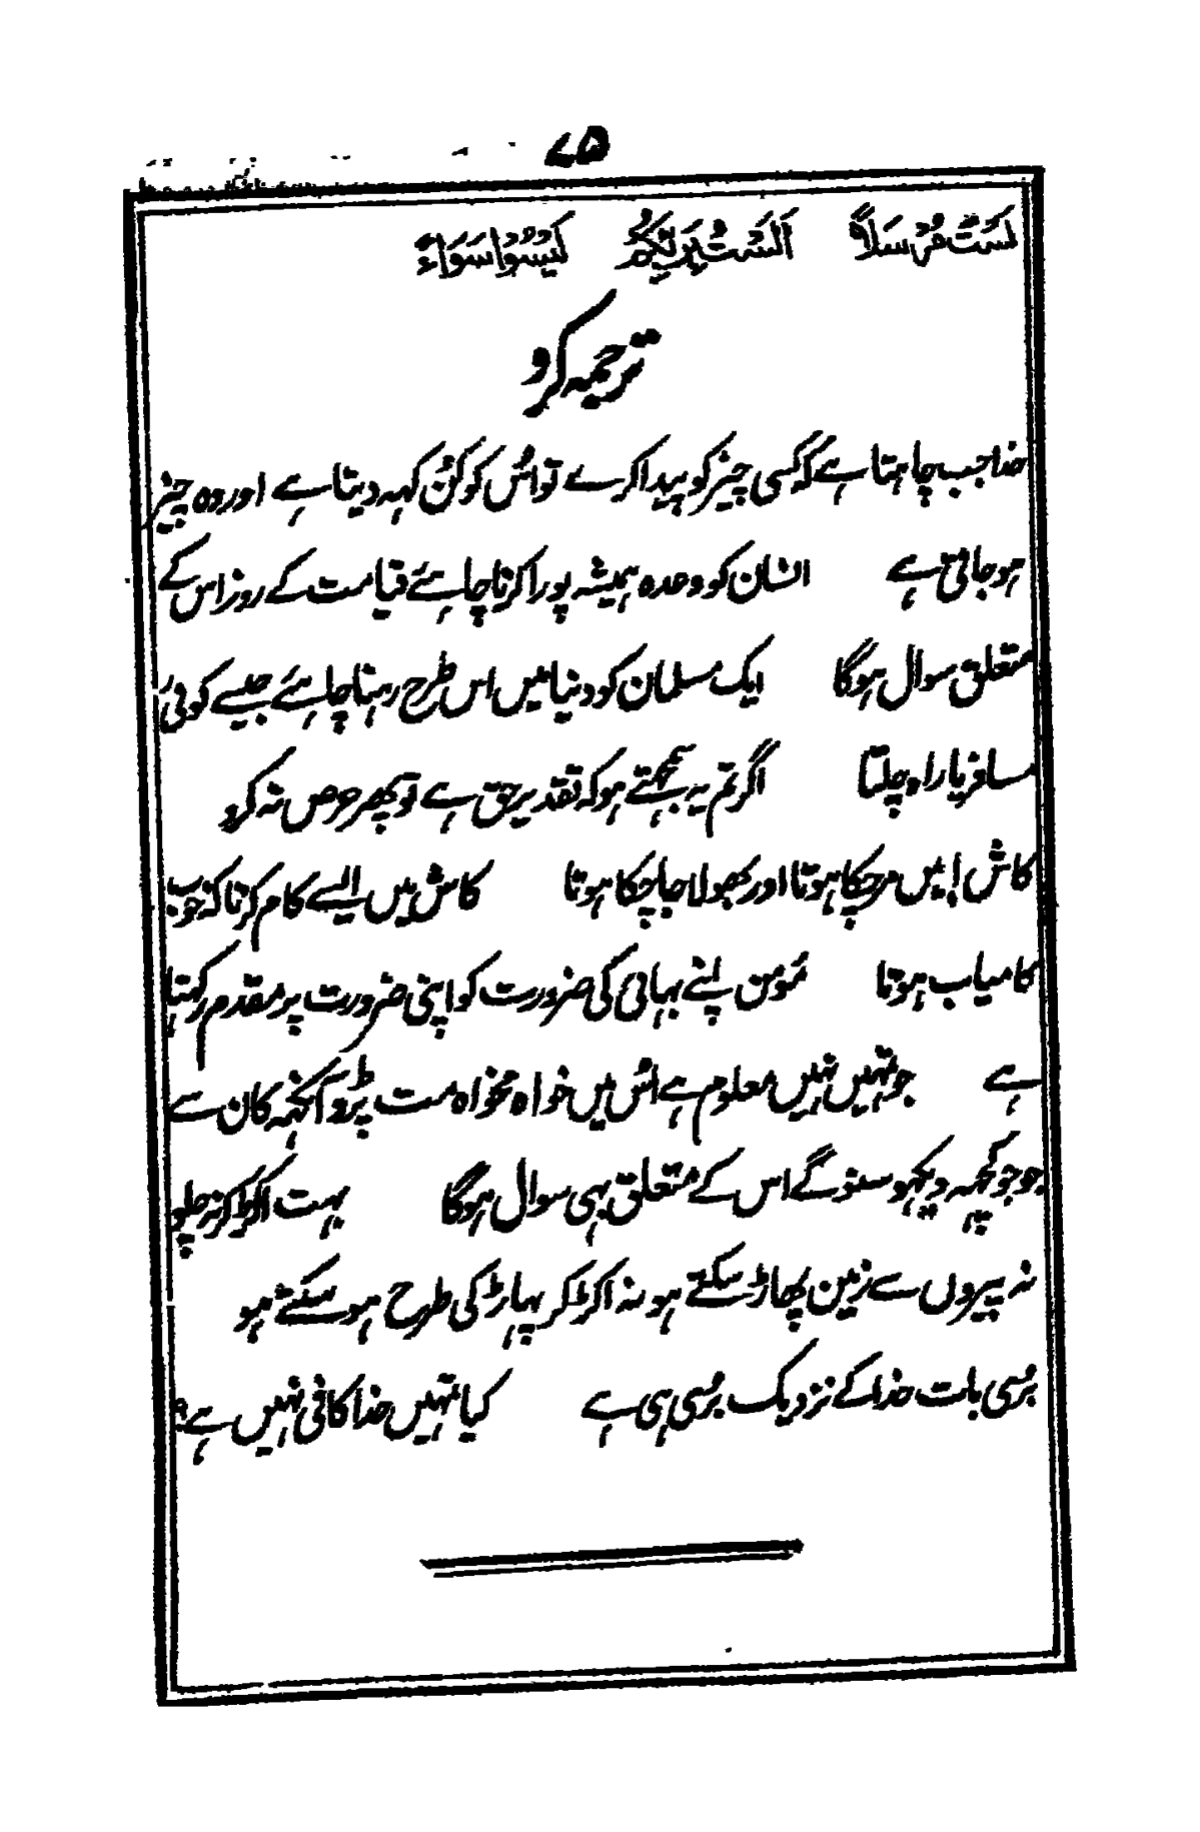 ۷۵
لَسْتَ مُرْسَلاً اَلَسْتُ بِرَبِّكُمْ لَيْسُوْا سَوَاءً
ترجمہ کرو
خدا جب چاہتا ہے کہ کسی چیز کو پیدا کرے تو اُس کو کُن کہہ دیتا ہے اور وہ چیز
ہو جاتی ہے انسان کو وعدہ ہمیشہ پورا کرنا چاہئے قیامت کے روز اس کے
متعلق سوال ہوگا ایک مسلمان کو دنیا میں اس طرح رہنا چاہئے جیسے کوئی
مسافر یا راہ چلتا اگر تم یہ سمجھتے ہو کہ تقدیر حق ہے تو پھر حرص نہ کرو
کاش میں مرچکا ہوتا اور بھولا جا چکا ہوتا کاش میں ایسے کام کرتا کہ خوب
کامیاب ہوتا مُومن اپنے بہائی کی ضرورت کو اپنی ضرورت پر مقدم رکہتا
ہے جو تمہیں نہیں معلوم ہے اُس میں خواہ مخواہ مت پڑو آنکہہ کان سے
جو جو کچہہ دیکہو سنو گے اس کے متعلق بہی سوال ہوگا بہت اکڑ کر نہ چلو
نہ پیروں سے زمین پھاڑ سکتے ہو نہ اکڑ کر پہاڑ کی طرح ہو سکتے ہو
بُری بات خدا کے نزدیک بُری ہی ہے کیا تمہیں خدا کافی نہیں ہے؟